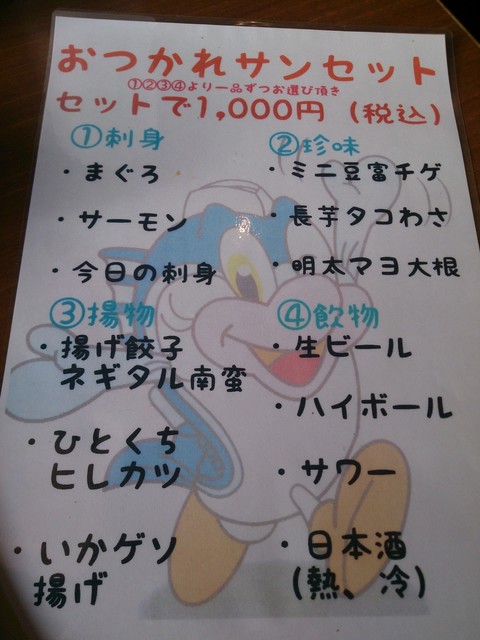 おつかれサンセット
①②③④より一品ずつお選び頂き
セットで1,000円（税込）
①刺身
・まぐろ
・サーモン
・今日の刺身
②珍味
・ミニ豆富チゲ
・長芋タコわさ
・明太マヨ大根
③揚物
・揚げ餃子
ネギタル南蛮
・ひとくち
ヒレカツ
・いかゲソ
揚げ
④飲物
・生ビール
・ハイボール
・サワー
・日本酒
（熱、冷）